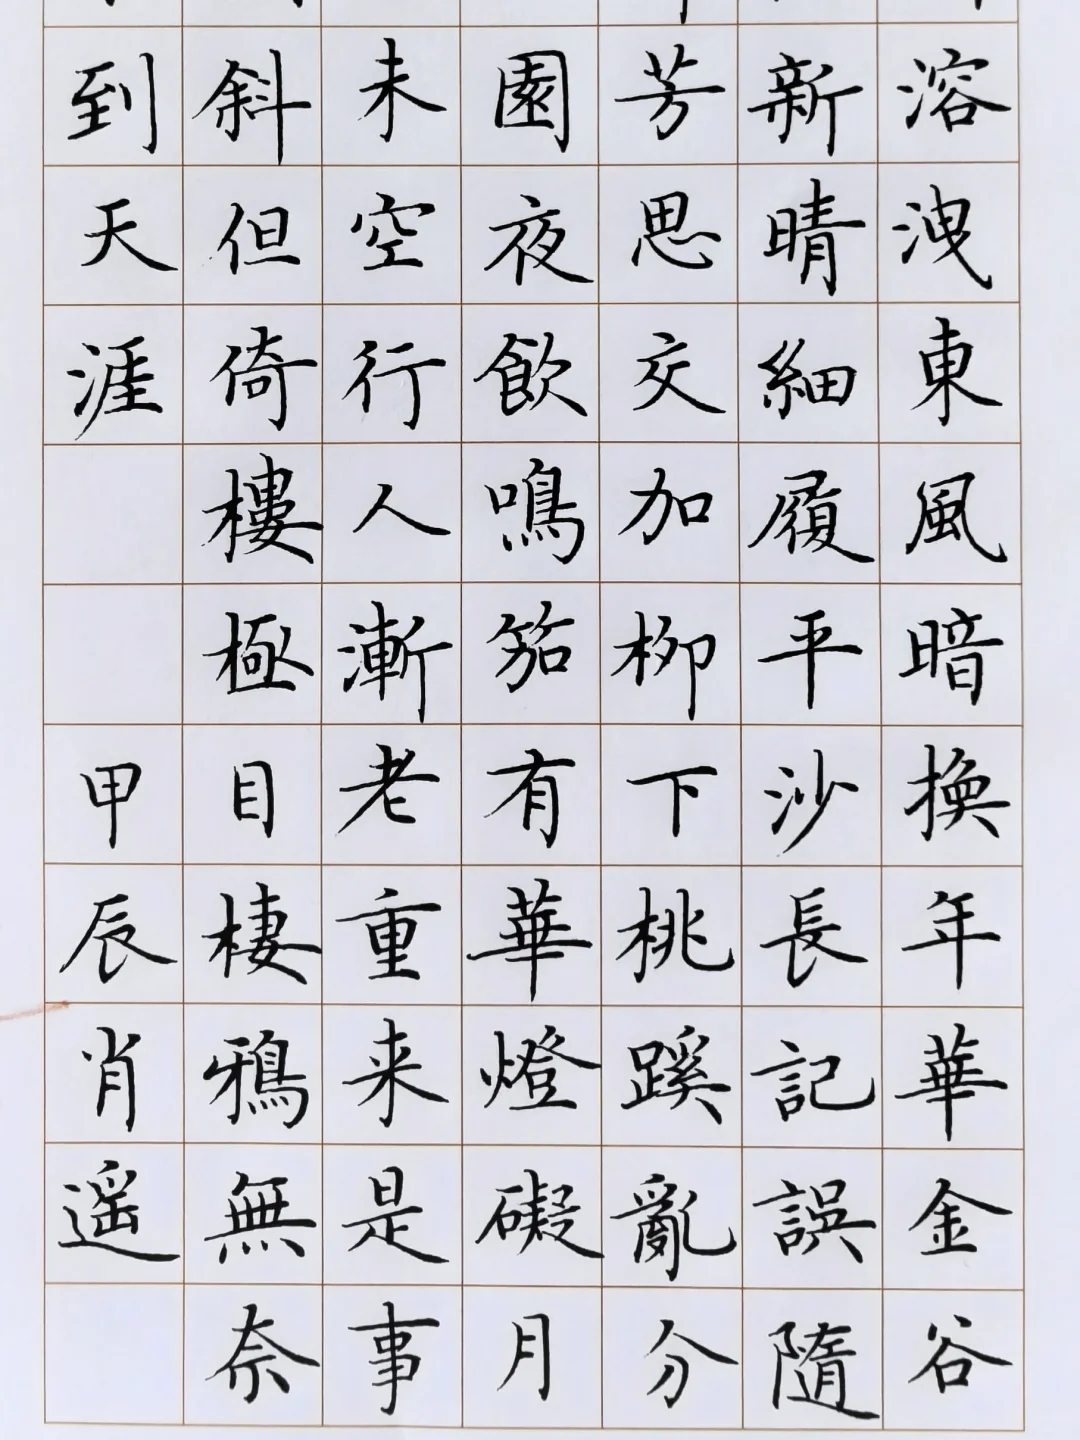 溶洩東風暗換年華金谷
新晴細履平沙長記誤隨
芳思交加柳下桃蹊亂分
園夜飲鳴笳有華燈礙月
未空行人漸老重来是事
斜但倚樓極目棲鴉無奈
到天涯
甲辰肖遥